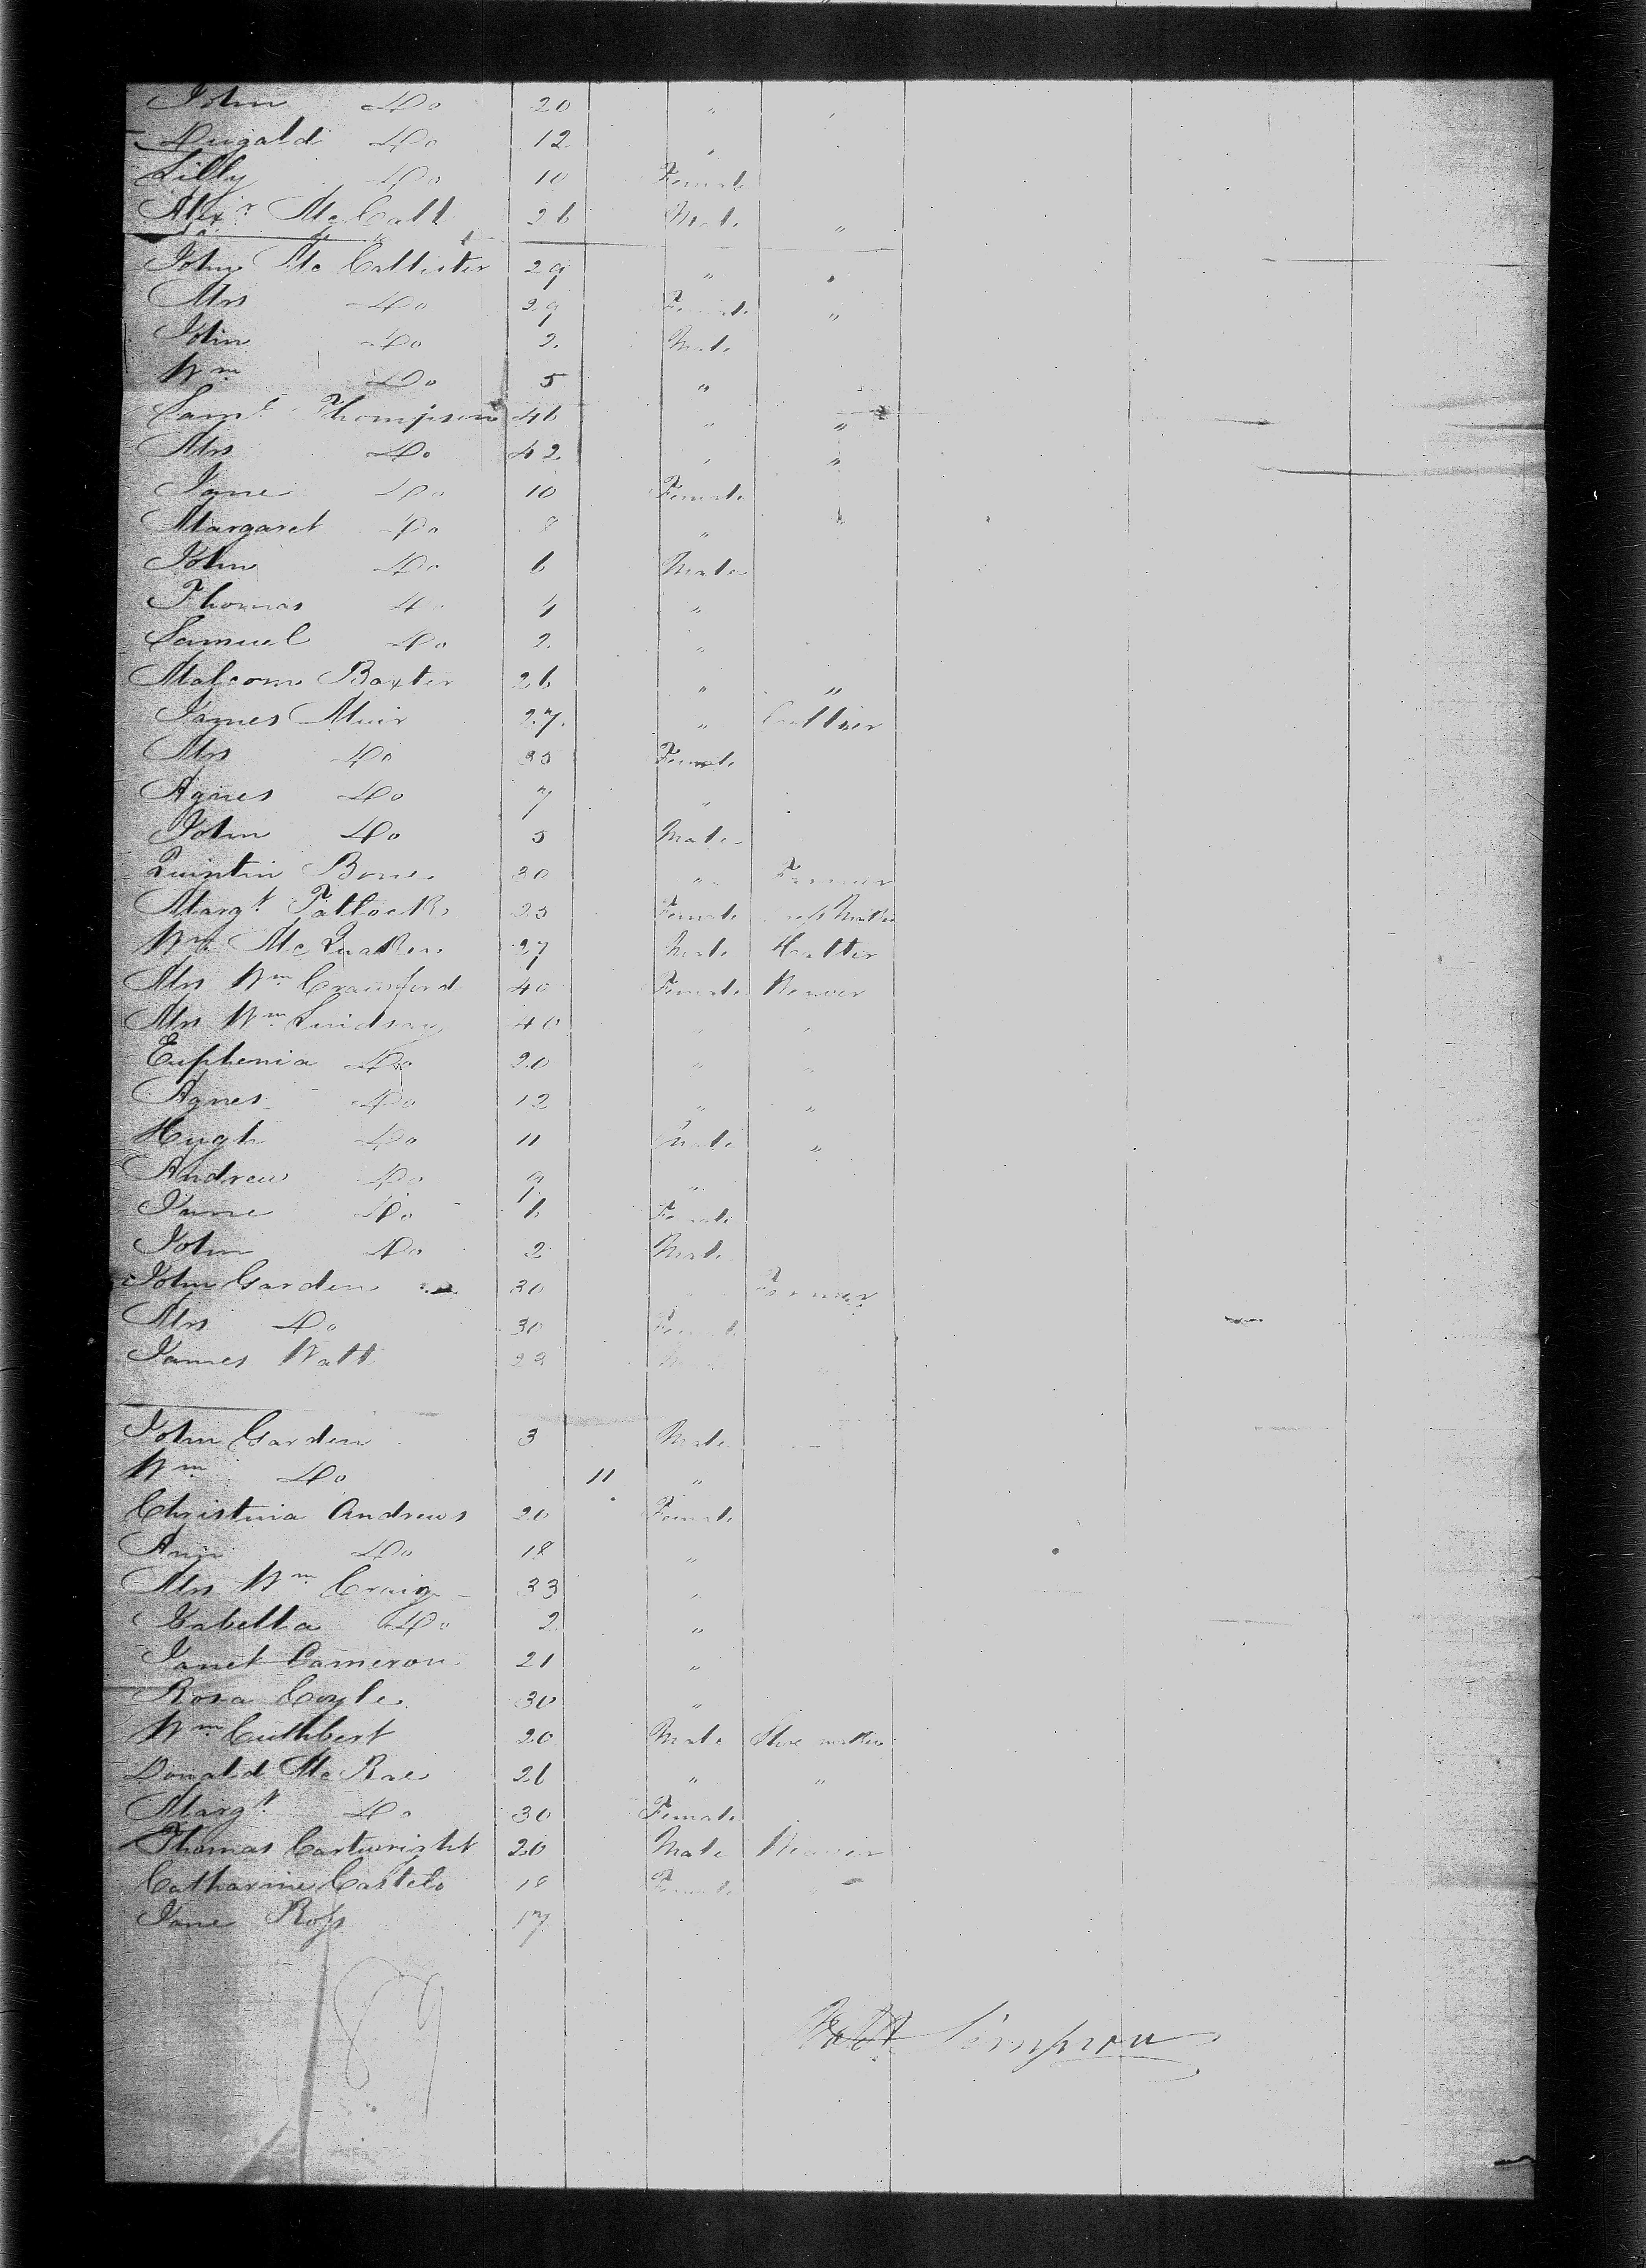 John Do 20 " "
Dugald Do 12 "
Lilly Do 10 Female
Alexr McCall 26 Male "
John McCallister 29 " "
Mrs Do 29 Female "
John Do 2 Male
Wm Do 5 "
Saml Thompson 46 " "
Mrs Do 42 " "
Jane Do 10 Female
Margaret Do 8 "
John Do 6 Male
Thomas Do 4 "
Samuel Do 2 "
Malcom Baxter 26 " "
James Muir 27 "
Mrs Do 35 Female
Agnes Do 7 "
John Do 5 Male
Quintin Bone 30 " Farmer
Margt Tallock 25 Female Maker
Wm McQuaken 27 Male Hatter
Mrs Wm Crawford 40 Female Weaver
Mrs Wm Lindsay 40 " "
Euphemia Do 20 " "
Agnes Do 12 " "
Hugh Do 11 Male "
Andrew Do 9 "
Jane Do 6 Female
John Do 2 Male
John Garden 30 " Farmer
Mrs Do 30 Female
James Watt Male "
John Garden 3 Male
Wm Do 11 "
Christina Andrews 20 Female
Ann Do 18 "
Mrs Wm Craig 33 "
Isabella Do 2 "
Janet Cameron 21 "
Rosa Coyle 30 "
Wm Cuthbert 20 Male Shoe maker
Donald McRae 26 " "
Margt Do 30 Female
Thomas Cartwright 20 Male Weaver
Catharine Castelo 18 Female "
Jane Ross 17
Robt Simpson
89